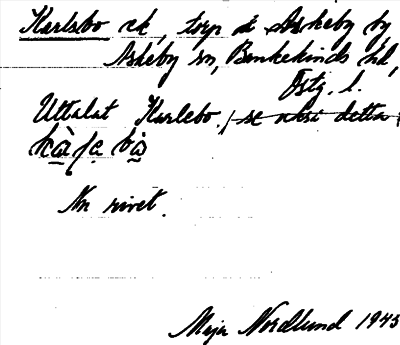 Karlsbo ck, torp å Askeby by
Askeby sn, Bankekinds hd,
Östg. l.
Uttalat Karlebo. / se även detta /
Nn rivet.
Maja Nordlund 1945